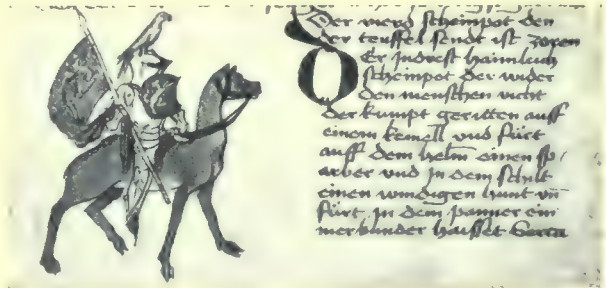 Der vierd scheinpot den
der teuffel sendt ist zoren
Er Jndrest haimlich
scheinpot der wider
den menschen vicht
der kumpt geritten auff
einem kemell vnd fürt
auff dem helm einen sp/
arber vnd Jn dem schilt
einen windigen hunt vn̄
fürt Jn dem panner ein
merbunder haisset